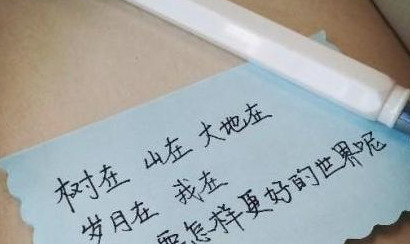 树在 山在 大地在
岁月在 我在
要怎样更好的世界呢